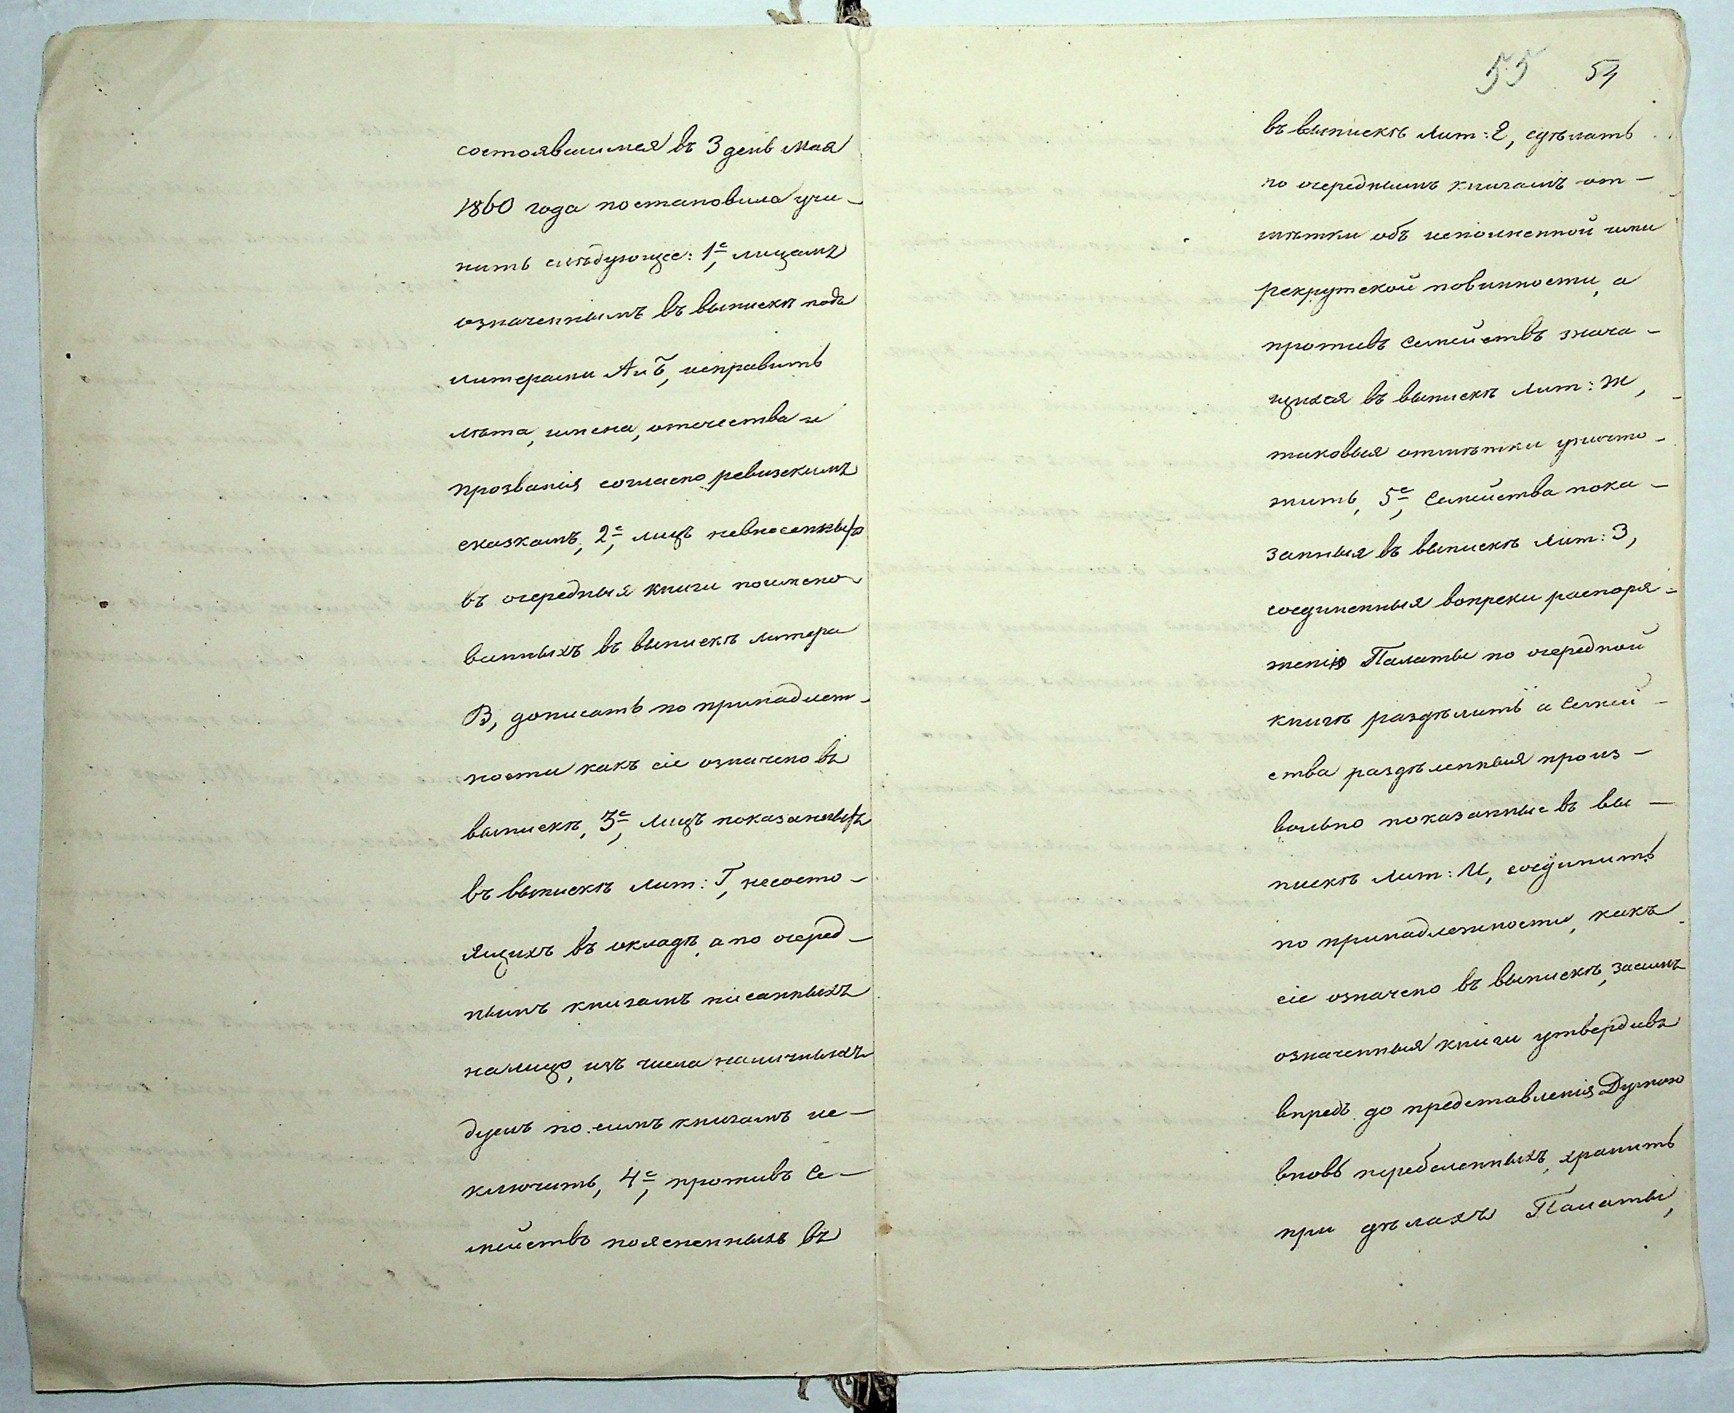 состоявшимся въ 3 день Мая
1860 года постановила учи-
нить слѣдующее: 1е, лицамъ
означеннымъ въ выпискѣ подъ
литерами А и Б, исправить
лѣта, имена, отечества и
прозванія согласно ревизскимъ
сказкамъ, 2е, лицъ невнесенныхъ
въ очередныя книги поимено-
ванныхъ въ выпискѣ литера
В, дописать по принадлеж-
ности какъ сіе означено въ
выпискѣ, 3е, лицъ показанныхъ
въ выпискѣ Лит: Г, несосто-
ящихъ въ окладѣ, а по очеред-
нымъ книгамъ писанныхъ
на лицо, изъ числа наличныхъ
душъ по симъ книгамъ ис-
ключить, 4е, противъ Се-
мействъ поясненныхъ въ
55 54
въ выпискѣ Лит: Е, сдѣлать
по очереднымъ книгамъ от-
мѣтки объ исполненной ими
рекрутской повинности, а
противъ Семействъ знача-
щихся въ выпискѣ Лит: Ж,
таковыя отмѣтки уничто-
жить, 5е, Семейства пока-
занныя въ выпискѣ Лит: З,
соединенныя вопреки распоря-
женію Палаты по очередной
книгѣ раздѣлить а Семей-
ства раздѣленныя произ-
вольно показанные въ вы-
пискѣ Лит: И, соединить
по принадлежности, какъ
сіе означено въ выпискѣ, засимъ
означенныя книги утвердивъ
впредь до представленія Думою
вновь перебеленныхъ, хранить
при дѣлахъ Палаты,